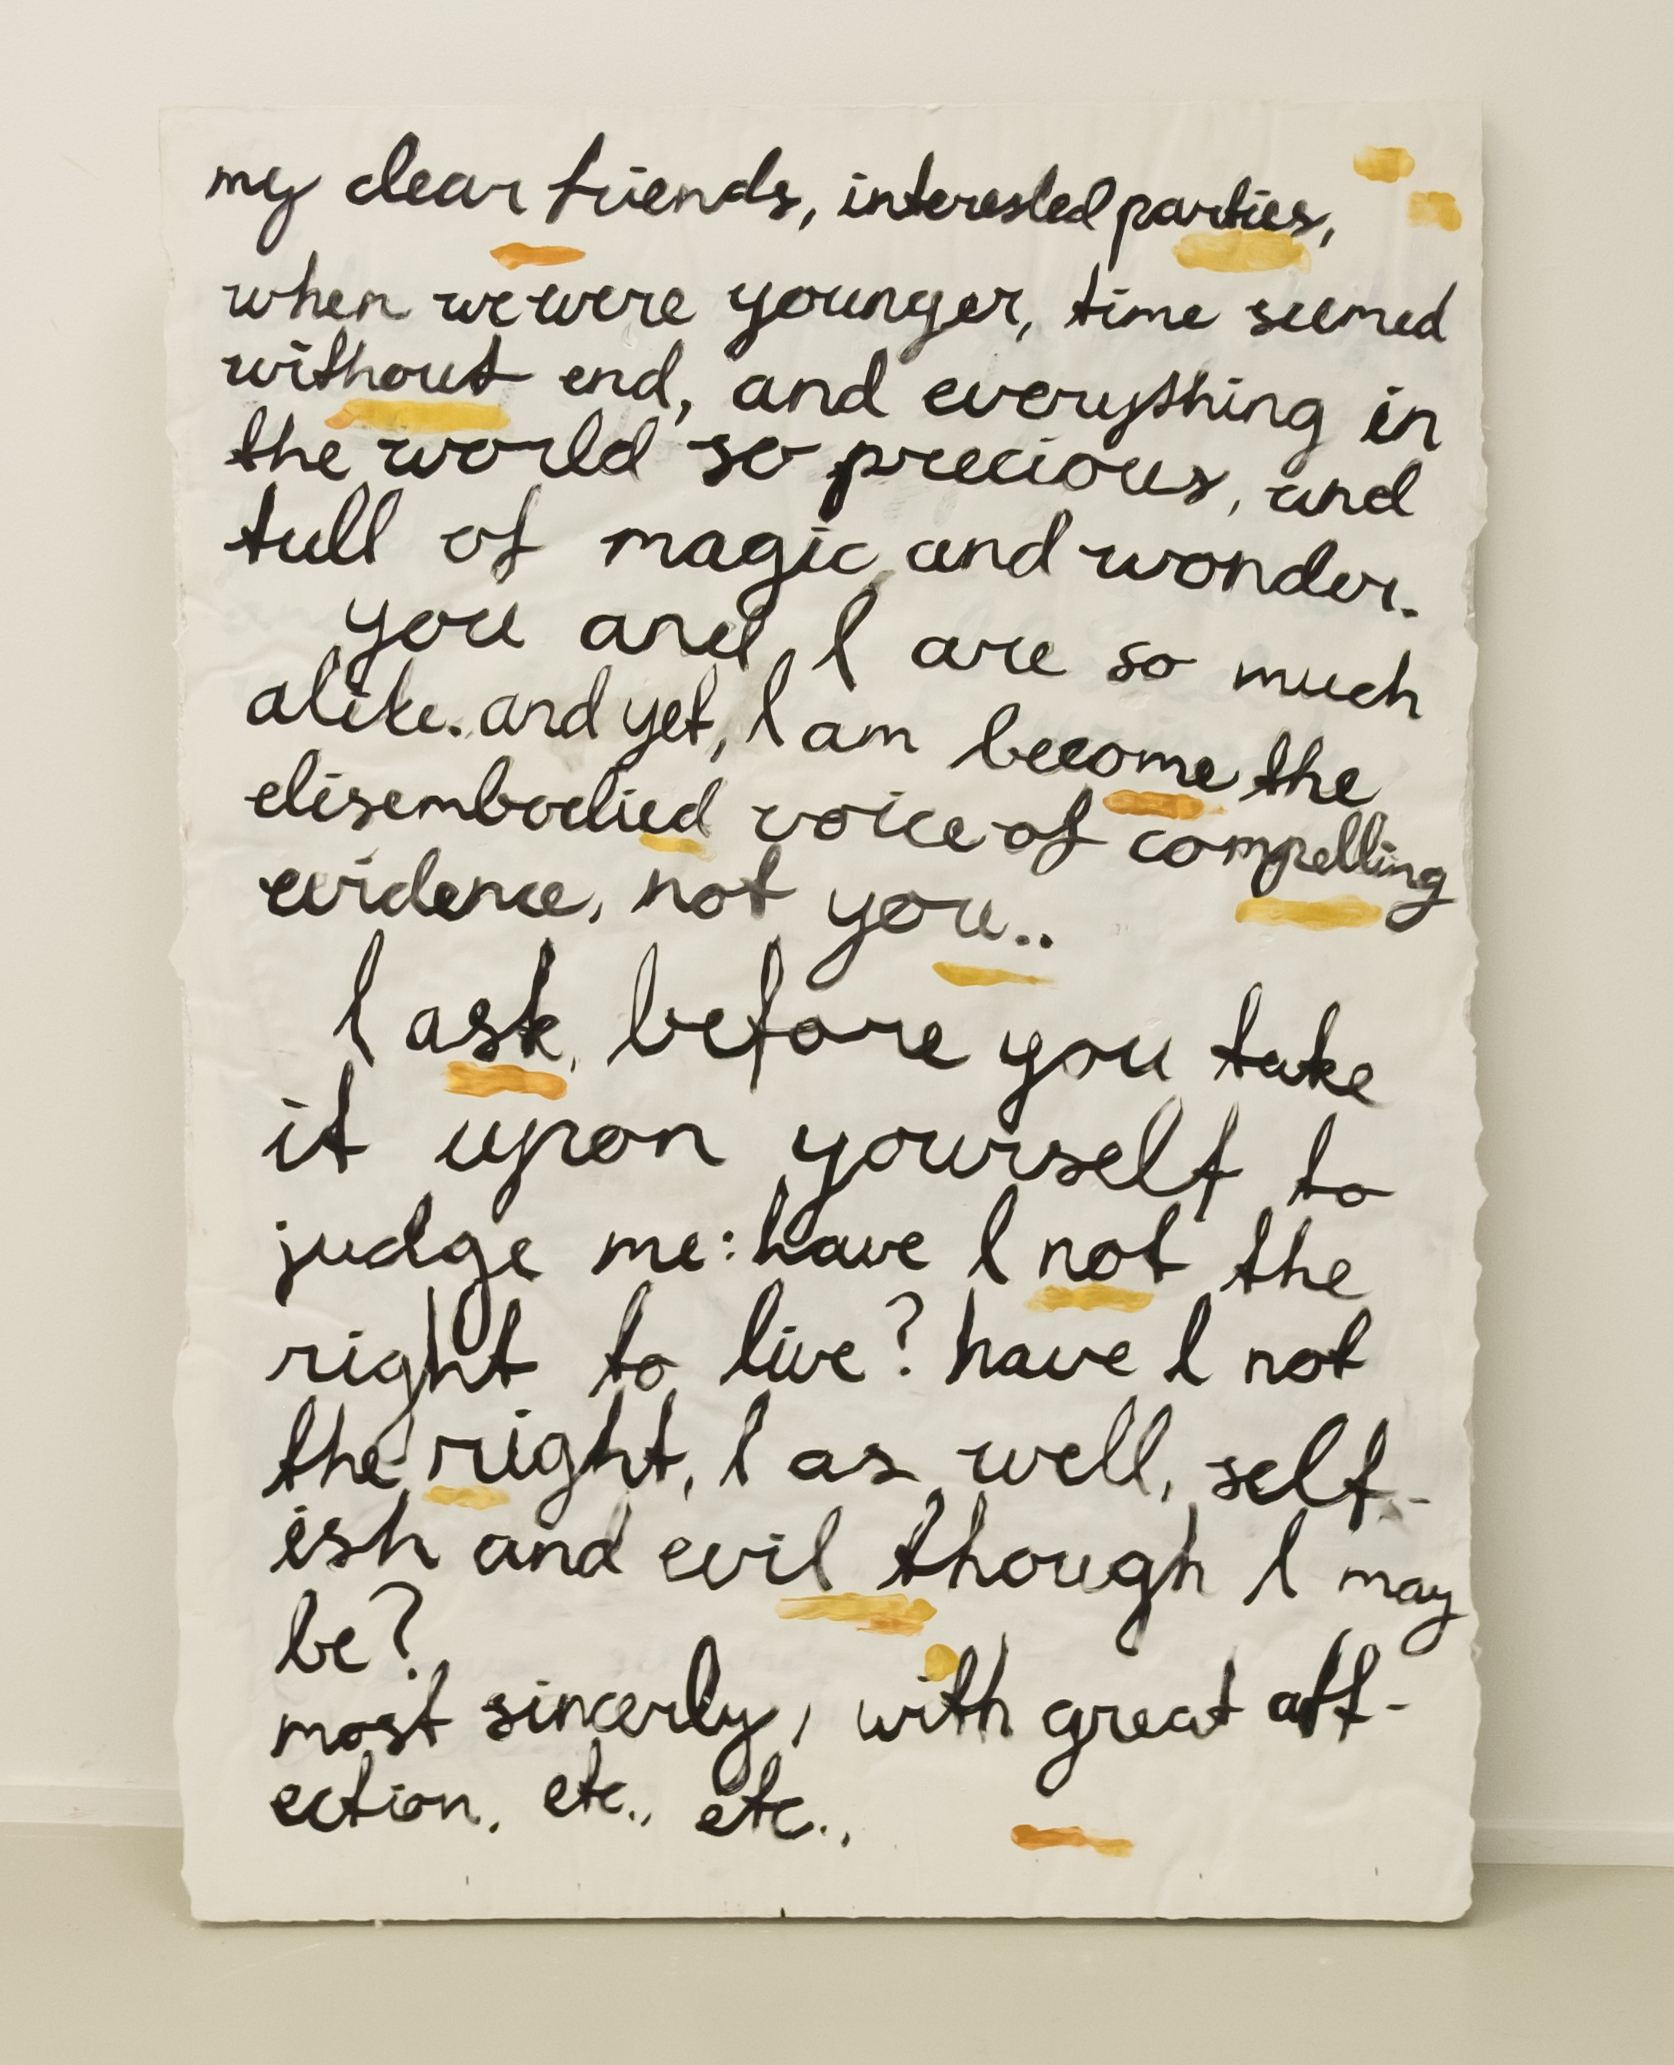 my dear friends, interested parties,
when we were younger, time seemed
without end, and everything in
the world so precious, and
full of magic and wonder.
you and I are so much
alike. and yet, I am become the
disembodied voice of compelling
evidence, not you..
I ask, before you take
it upon yourself to
judge me: have I not the
right to live? have I not
the right, I as well, self-
ish and evil though I may
be?
most sincerly, with great aff-
ection, etc., etc.,